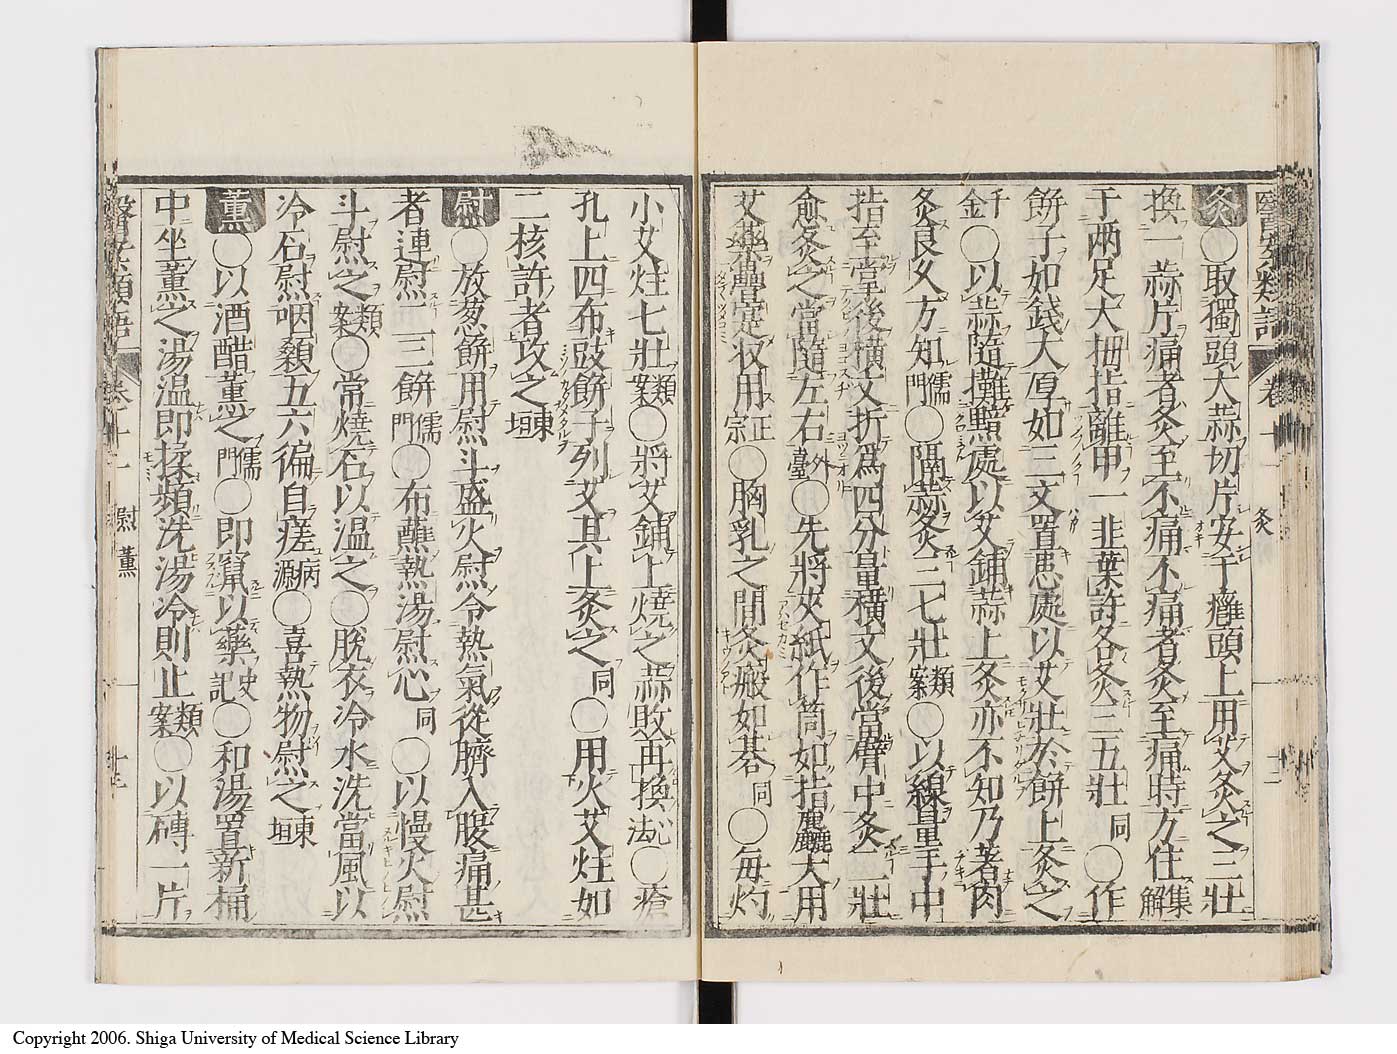 醫案類語 卷十一 灸 十二
灸○取獨頭大蒜切片安于癰頭上用艾灸之三壯
換一蒜片痛者灸至不痛不痛者灸至痛時方住集解
于両足大拇指離甲一韭葉許各灸三五壯同○作
餅子如錢大厚如三文置患處以艾壯於餅上灸之
千金○以蒜隨攤黯處以艾鋪蒜上灸亦不知乃著肉
灸良久方知儒門○隔蒜灸二七壯類案○以線量手中
指至掌後橫文折為四分量橫文後當臂中灸二壯
愈灸之當隨左右外臺○先將夾紙作筒如指麄大用
艾藥疊定収用正宗○胸乳之間灸瘢如碁同○毎灼
小艾炷七壯類案○將艾鋪上燒之蒜敗再換心法○瘡
孔上四布豉餅子列艾其上灸之同○用火艾炷如
二核許者攻之東垣
熨○放葱餅用熨斗盛火熨令熱氣從臍入腹痛甚
者連熨二三餅儒門○布蘸熱湯熨心同○以慢火熨
斗熨之類案○常燒石以温之○脫衣冷水洗當風以
冷石熨咽顙五六徧自瘥病源○喜熱物熨之東垣
薫○以酒醋薫之儒門○即窠以藥史記○和湯置新桶
中坐薫之湯温即揉頻洗湯冷則止類案○以磚一片
醫案類語 卷十一 熨薫 十二
Copyright 2006. Shiga University of Medical Science Library